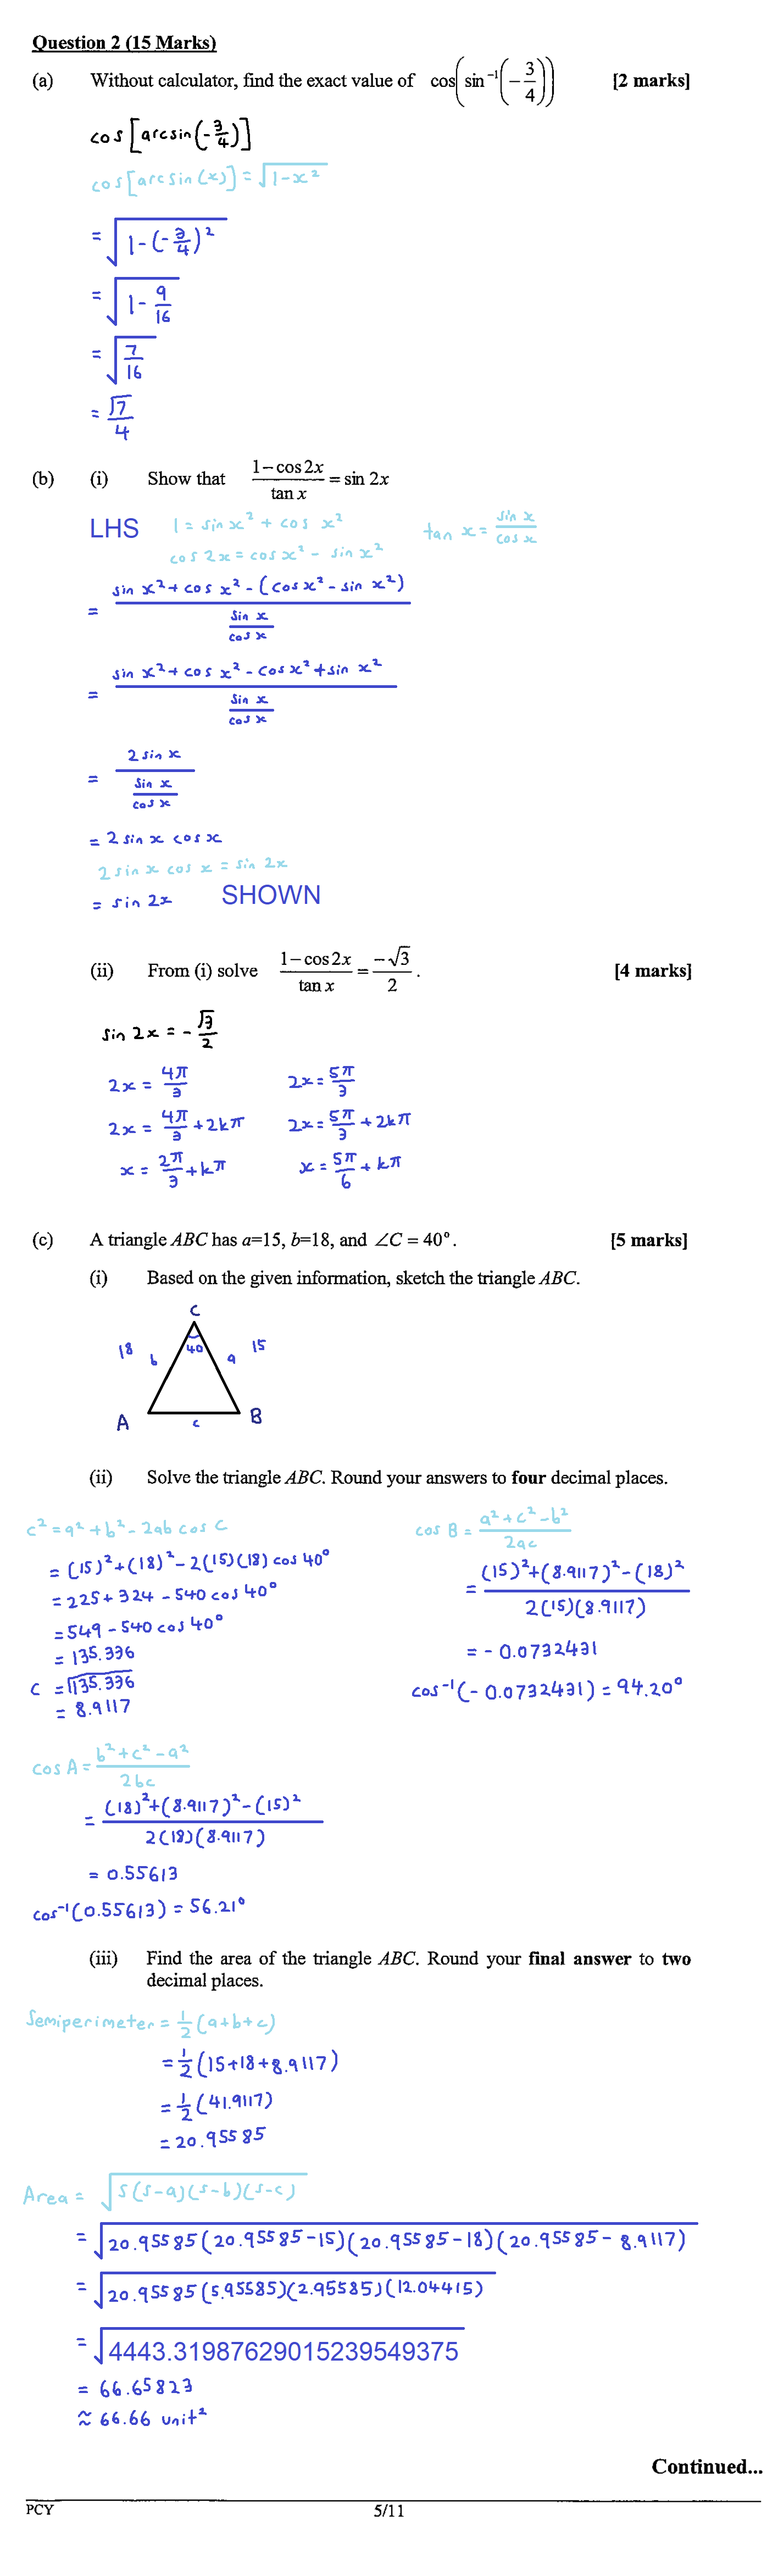 Question 2 (15 Marks)
(a) Without calculator, find the exact value of cos(sin⁻¹(−3/4)) [2 marks]
cos[arcsin(-3/4)]
cos[arcsin(x)] = √(1-x²)
= √(1-(-3/4)²)
= √(1-9/16)
= √(7/16)
= √7/4
(b) (i) Show that (1−cos2x)/(tan x) = sin 2x
LHS 1 = sin x² + cos x² tan x = sin x/cos x
cos 2x = cos x² - sin x²
= (sin x² + cos x² - (cos x² - sin x²))/(sin x/cos x)
= (sin x² + cos x² - cos x² + sin x²)/(sin x/cos x)
= (2 sin x)/(sin x/cos x)
= 2 sin x cos x
2 sin x cos x = sin 2x
= sin 2x SHOWN
(ii) From (i) solve (1−cos2x)/(tan x) = −√3/2. [4 marks]
sin 2x = - √3/2
2x = 4π/3 2x = 5π/3
2x = 4π/3 + 2kπ 2x = 5π/3 + 2kπ
x = 2π/3 + kπ x = 5π/6 + kπ
(c) A triangle ABC has a=15, b=18, and ∠C = 40°. [5 marks]
(i) Based on the given information, sketch the triangle ABC.
C
18 b 40 a 15
A c B
(ii) Solve the triangle ABC. Round your answers to four decimal places.
c² = a² + b² - 2ab cos C
= (15)² + (18)² - 2(15)(18) cos 40°
= 225 + 324 - 540 cos 40°
= 549 - 540 cos 40°
= 135.336
C = √135.336
= 8.9117
cos B = (a² + c² - b²)/2ac
= ((15)² + (8.9117)² - (18)²)/(2(15)(8.9117))
= - 0.0732431
cos⁻¹(- 0.0732431) = 94.20°
cos A = (b² + c² - a²)/2bc
= ((18)² + (8.9117)² - (15)²)/(2(18)(8.9117))
= 0.55613
cos⁻¹(0.55613) = 56.21°
(iii) Find the area of the triangle ABC. Round your final answer to two
decimal places.
Semiperimeter = 1/2(a+b+c)
= 1/2(15+18+8.9117)
= 1/2(41.9117)
= 20.95585
Area = √(s(s-a)(s-b)(s-c))
= √(20.95585(20.95585-15)(20.95585-18)(20.95585-8.9117))
= √(20.95585(5.95585)(2.95585)(12.04415))
= √4443.31987629015239549375
= 66.65823
≈ 66.66 unit²
Continued...
PCY 5/11